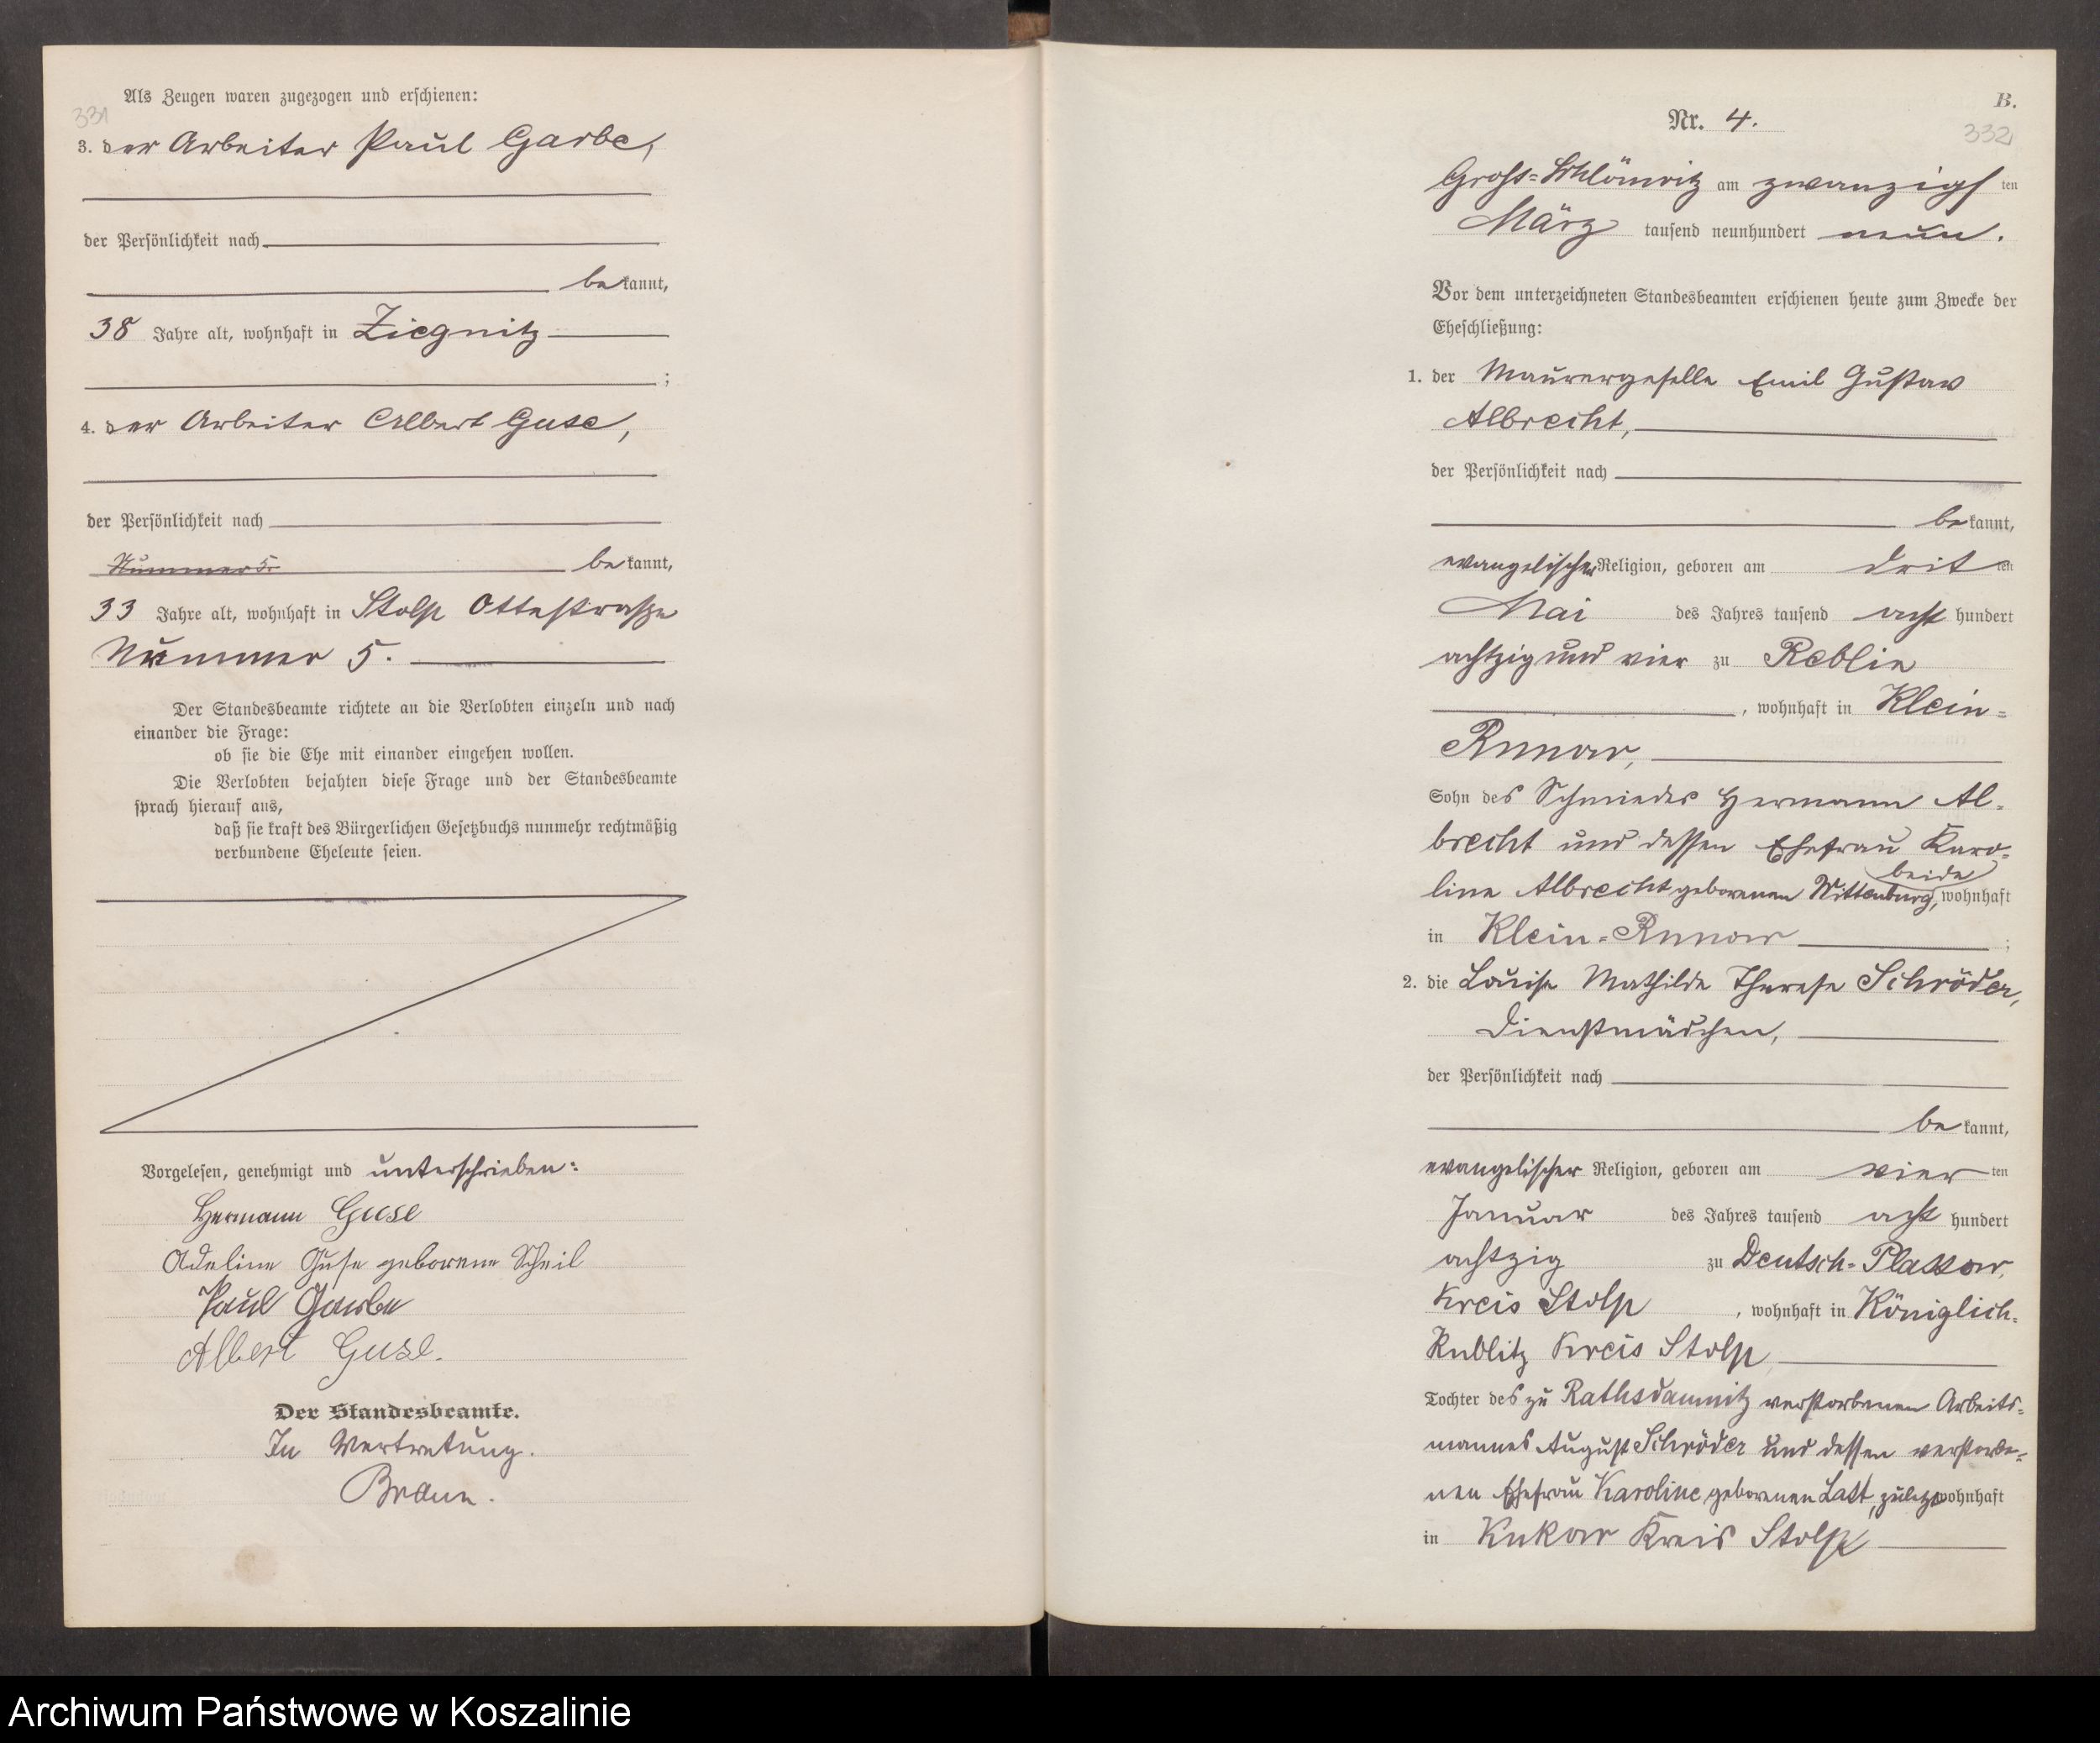 Als Zeugen waren zugezogen und erschienen:
331
3. der Arbeiter Paul Garbe,
der Persönlichkeit nach
bekannt,
38 Jahre alt, wohnhaft in Ziegnitz
;
4. der Arbeiter Albert Guse,
der Persönlichkeit nach
Nummer 5. bekannt,
33 Jahre alt, wohnhaft in Stolp Ottostraße
Nummer 5.
Der Standesbeamte richtete an die Verlobten einzeln und nach
einander die Frage:
ob sie die Ehe mit einander eingehen wollen.
Die Verlobten bejahten diese Frage und der Standesbeamte
sprach hierauf aus,
daß sie kraft des Bürgerlichen Gesetzbuchs nunmehr rechtmäßig
verbundene Eheleute seien.
Vorgelesen, genehmigt und unterschrieben:
Hermann Guse
Adeline Guse geborene Scheil
Paul Garbe
Albert Guse.
Der Standesbeamte.
In Vertretung.
Braun.
B.
Nr. 4.
332
Groß-Schlönwitz am zwanzigsten
März tausend neunhundert neun.
Vor dem unterzeichneten Standesbeamten erschienen heute zum Zwecke der
Eheschließung:
1. der Maurergeselle Emil Gustav
Albrecht,
der Persönlichkeit nach
bekannt,
evangelischer Religion, geboren am dritten
Mai des Jahres tausend acht hundert
achtzig und vier zu Reblin
, wohnhaft in Klein-
Runow,
Sohn des Schmiedes Hermann Al-
brecht und dessen Ehefrau Karo-
beide
line Albrecht geborenen Wittenburg, wohnhaft
in Klein-Runow ;
2. die Louise Mathilde Therese Schröder,
Dienstmädchen,
der Persönlichkeit nach
bekannt,
evangelischer Religion, geboren am vierten
Januar des Jahres tausend acht hundert
achtzig zu Deutsch-Plassow,
Kreis Stolp , wohnhaft in Königlich-
Kublitz Kreis Stolp,
Tochter des zu Rathsdamnitz verstorbenen Arbeits-
mannes August Schröder und dessen verstorbe-
nen Ehefrau Karoline geborenen Latt, zuletzt wohnhaft
in Kukow Kreis Stolp
Archiwum Państwowe w Koszalinie